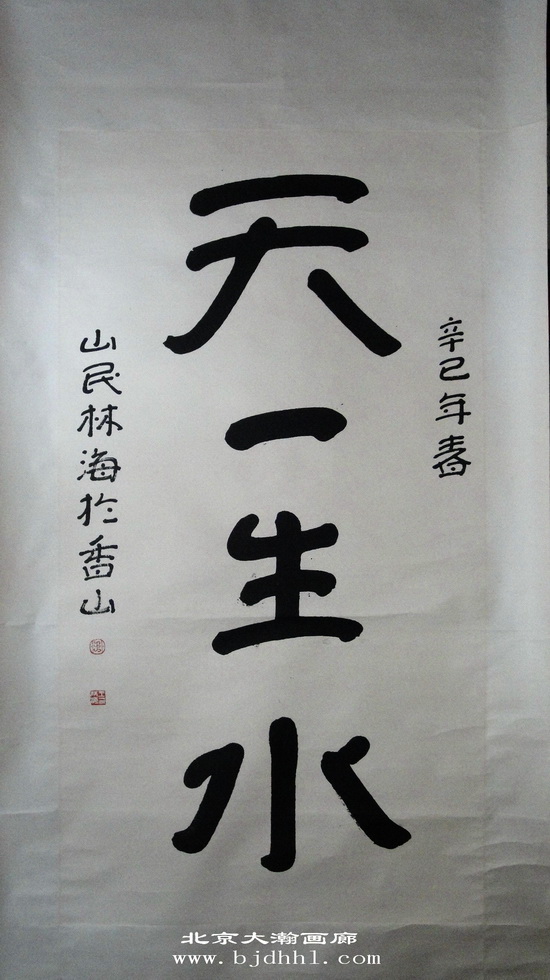 辛巳年春
天一生水
山民林海於香山
北京大瀚画廊
www.bjdhhl.com